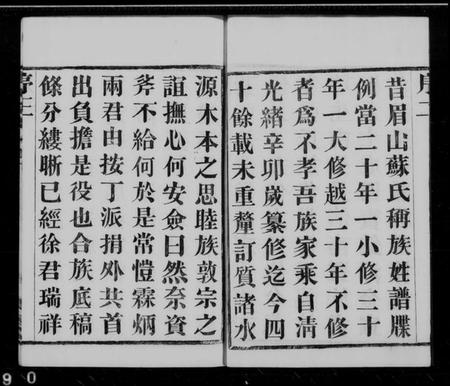 昔眉山蘇氏稱族姓譜牒
例當二十年一小修三十
年一大修越三十年不修
者爲不孝吾族家乘自淸
光緖辛卯歲纂修迄今四
十餘載未重釐訂質諸水
源木本之思睦族敦宗之
誼撫心何安僉曰然奈資
斧不給何於是常愷霖炳
兩君由按丁派捐外共首
出負擔是役也合族底稿
條分縷晰已經徐君瑞祥
9 0